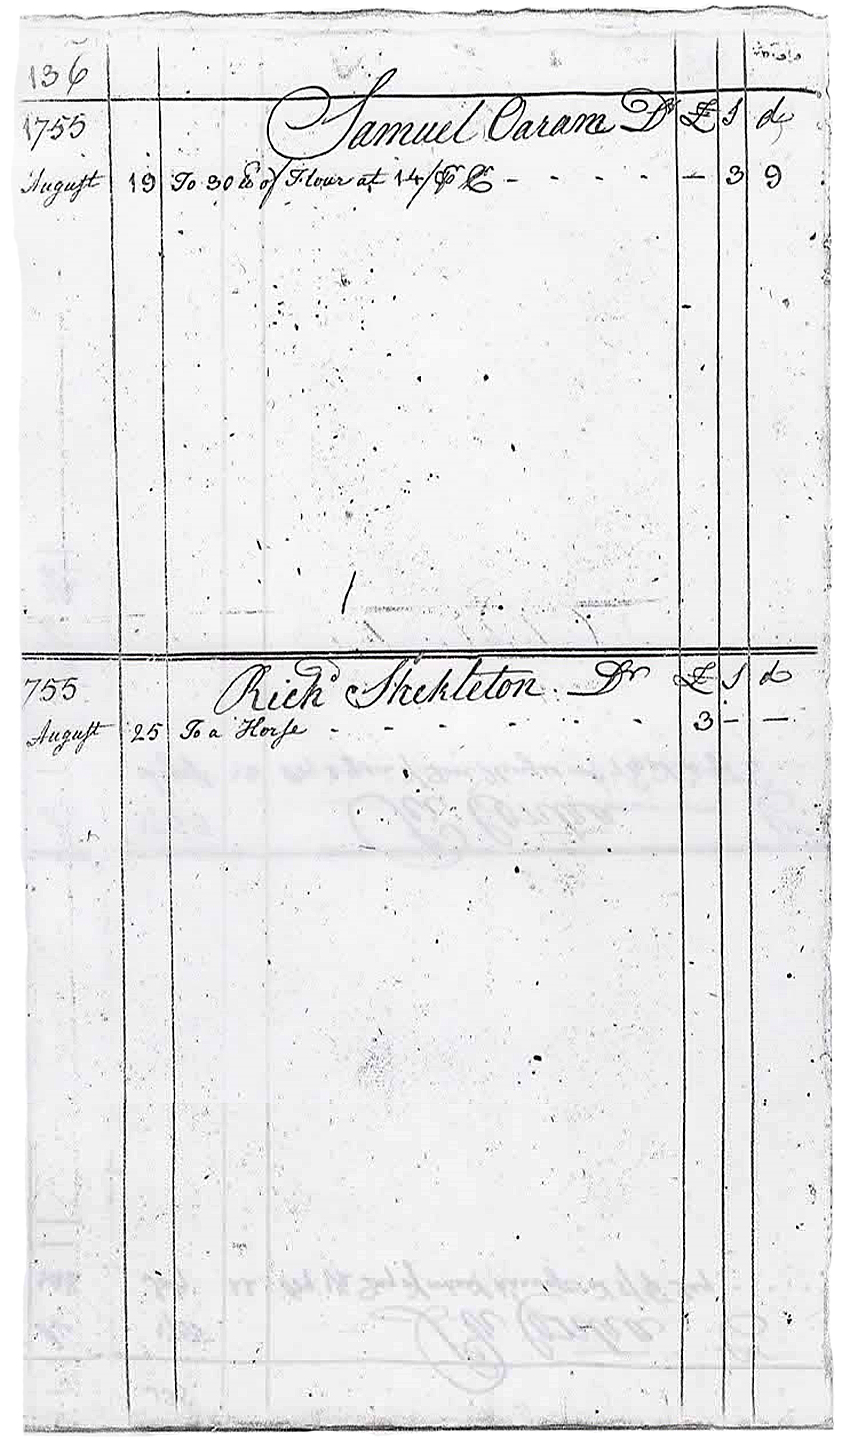 136
1755 Samuel Oaram Dr £ s d
August 19 To 30 lb of Flour at 14/ ₱ C - - - - - - 3 9
755 Richd Shekleton Dr £ s d
August 25 To a Horse - - - - - - - 3 - -